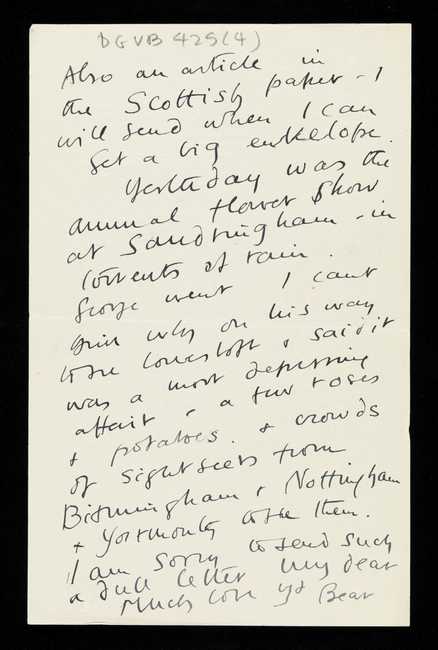 DGVB 425(4)
Also an article in
the Scottish paper - I
will send when I can
get a big envelope.
Yesterday was the
annual Flower Show
at Sandringham - in
torrents of rain.
George went I cant
why on his way
to see Lowestoft & said it
was a most depressing
affair - a few roses
& potatoes. & crowds
of sightseers from
Birmingham & Nottingham
& Yarmouth to see them.
I am sorry to send such
a dull letter my dear
Much love yr Bear